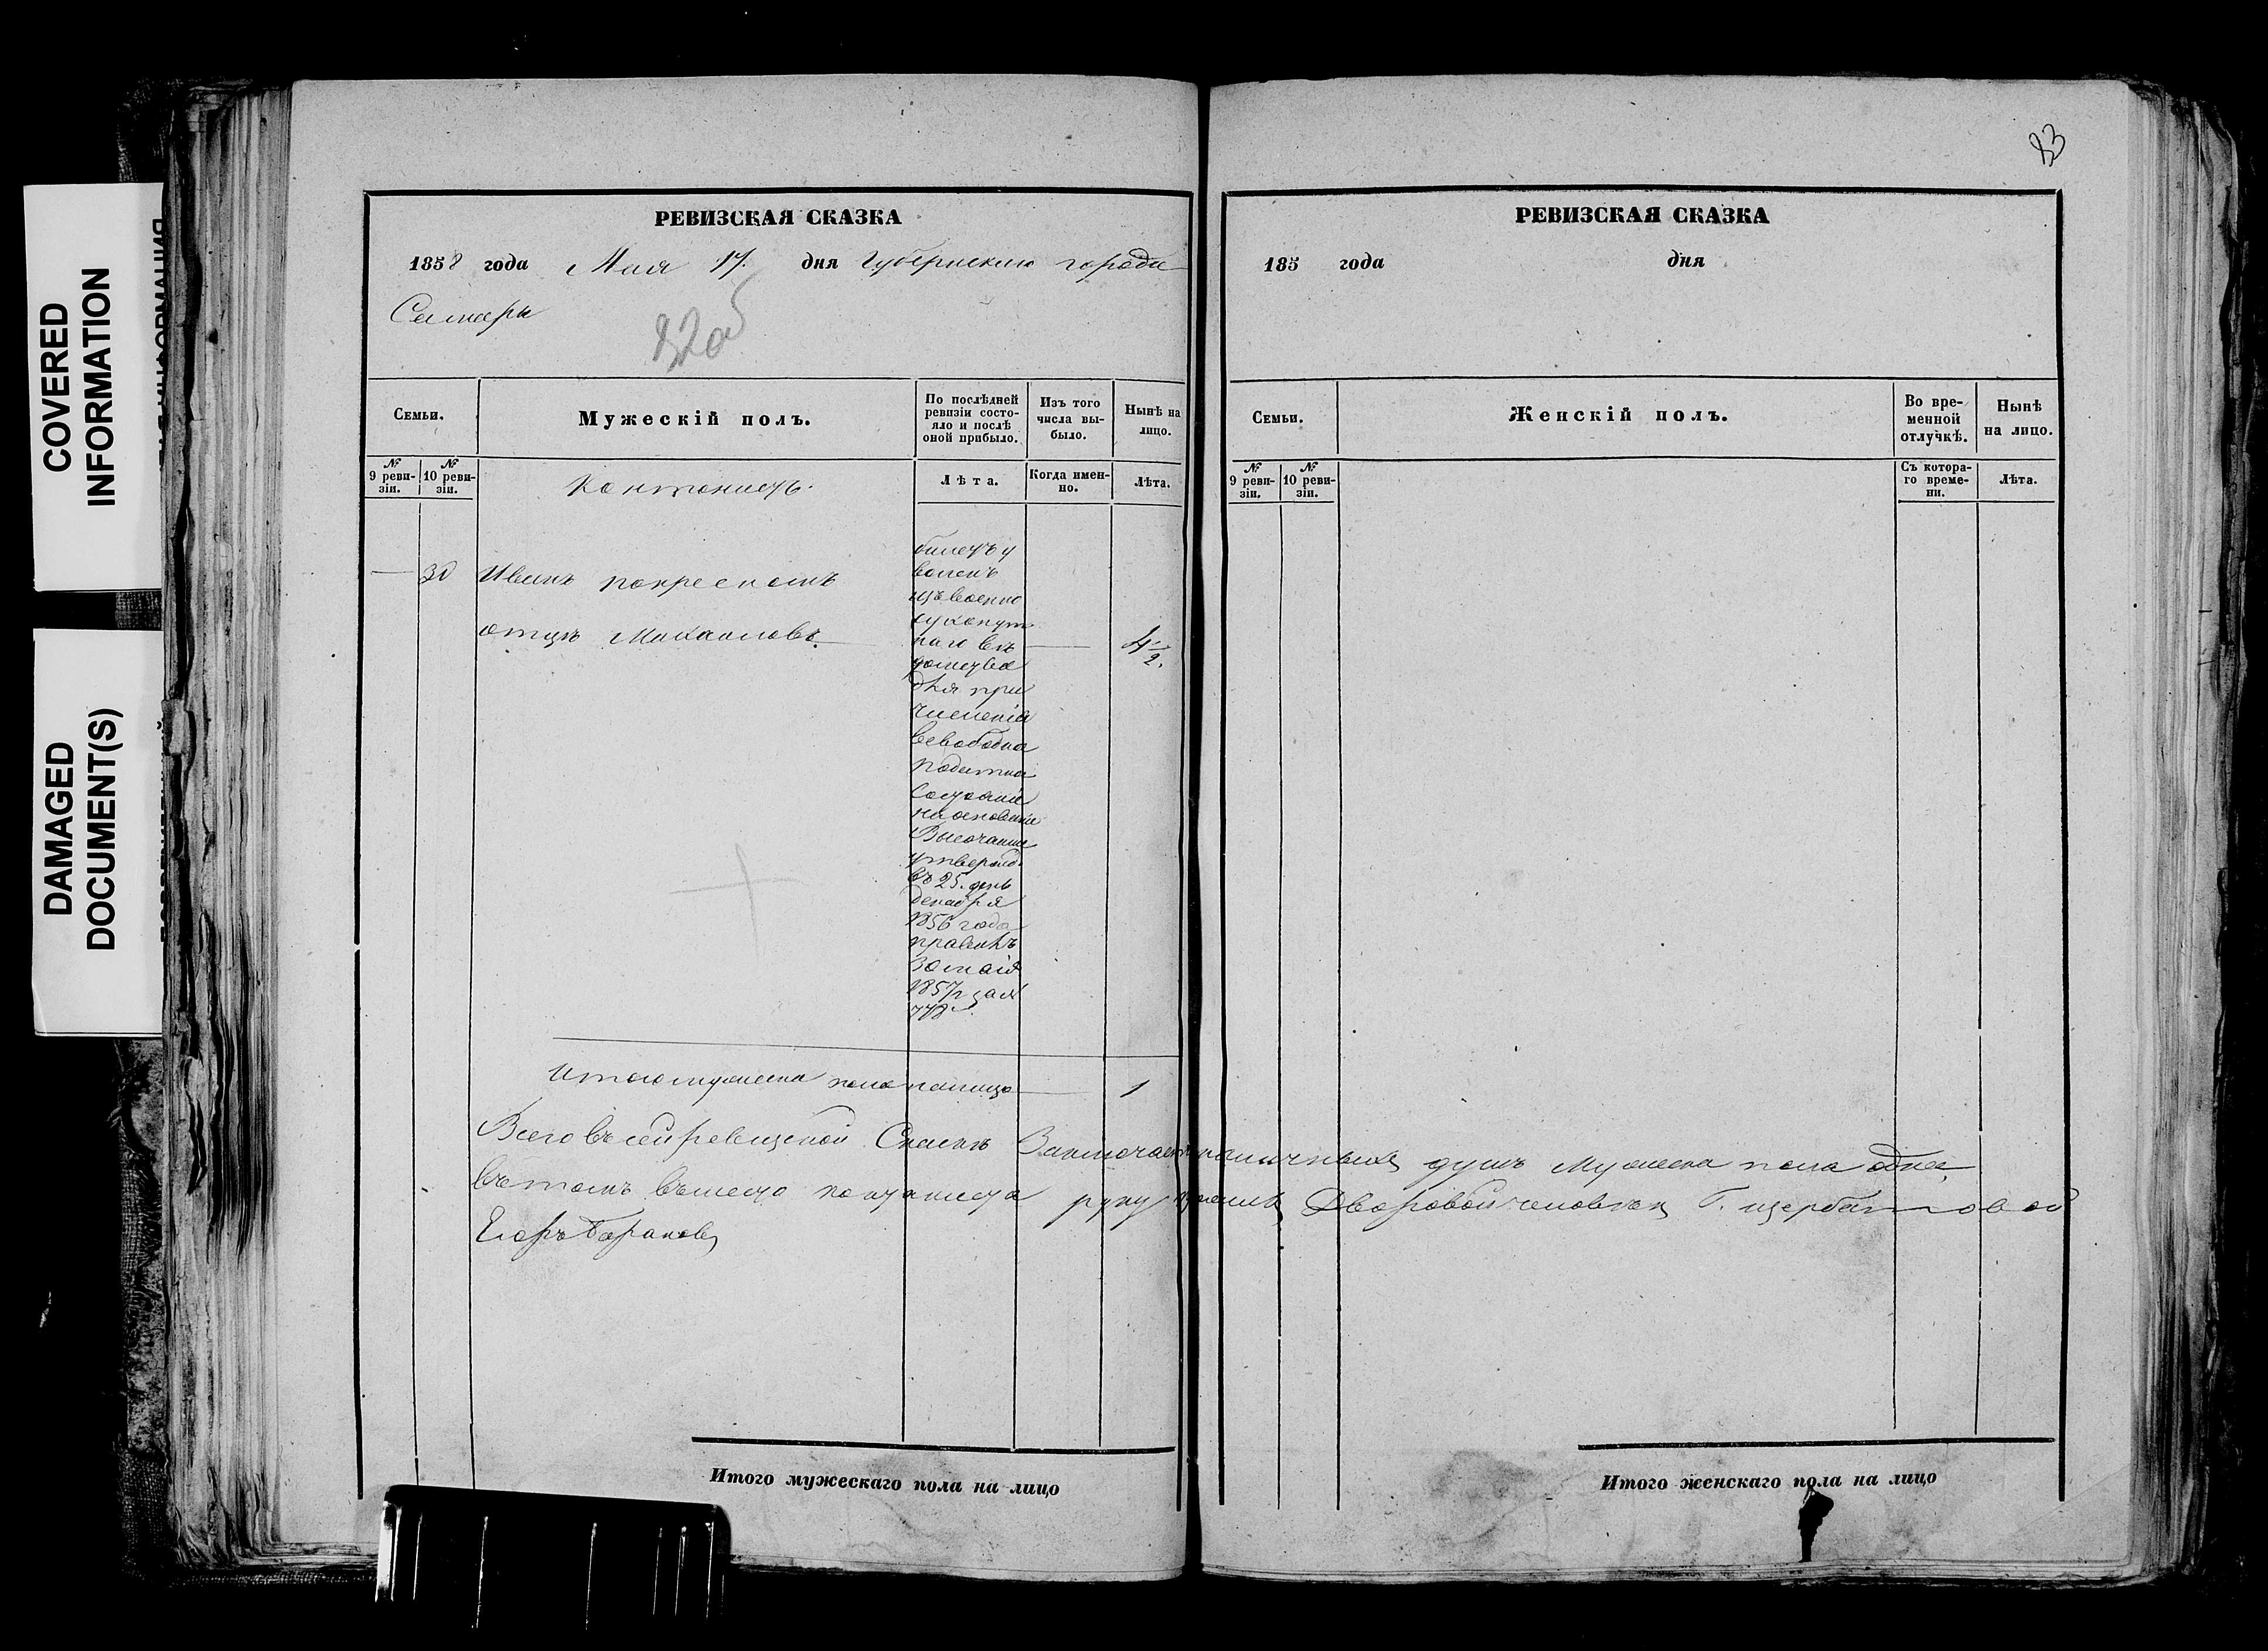 COVERED
INFORMATION
DAMAGED
DOCUMENT(S)
РЕВИЗСКАЯ СКАЗКА
1858 года Мая 17. дня Губернскаго города
Самары
82об
Семьи.
Мужескій полъ.
По послѣдней ревизіи состояло и послѣ оной прибыло.
Изъ того числа выбыло.
Нынѣ на лицо.
№ 9 ревизіи.
№ 10 ревизіи.
Кантонистъ.
Лѣта.
Когда именно.
Лѣта.
30
Иванъ покресному
отцу Михайловъ
4 1/2.
билетъ у
воленъ
изъ военно
сухопут
наго вѣ
домства
для при
численія
в свободно
податно
состояніе
на основаніи
Высочайше
утвержд.
въ 25. день
декабря
1856 года
правилъ
30 мая
1857 г за №
778
Итого мужеска пола налицо 1
Всего въ сей ревизской Сказкѣ Заключается наличныхъ душъ Мужеска пола одна
въ томъ вместо кантониста руку приложилъ Дворовой человекъ Г. Щербатовой
Егоръ Барановъ
Итого мужескаго пола на лицо
83
РЕВИЗСКАЯ СКАЗКА
185 года дня
Семьи.
Женскій полъ.
Во временной отлучкѣ.
Нынѣ на лицо.
№ 9 ревизіи.
№ 10 ревизіи.
Съ котораго времени.
Лѣта.
Итого женскаго пола на лицо